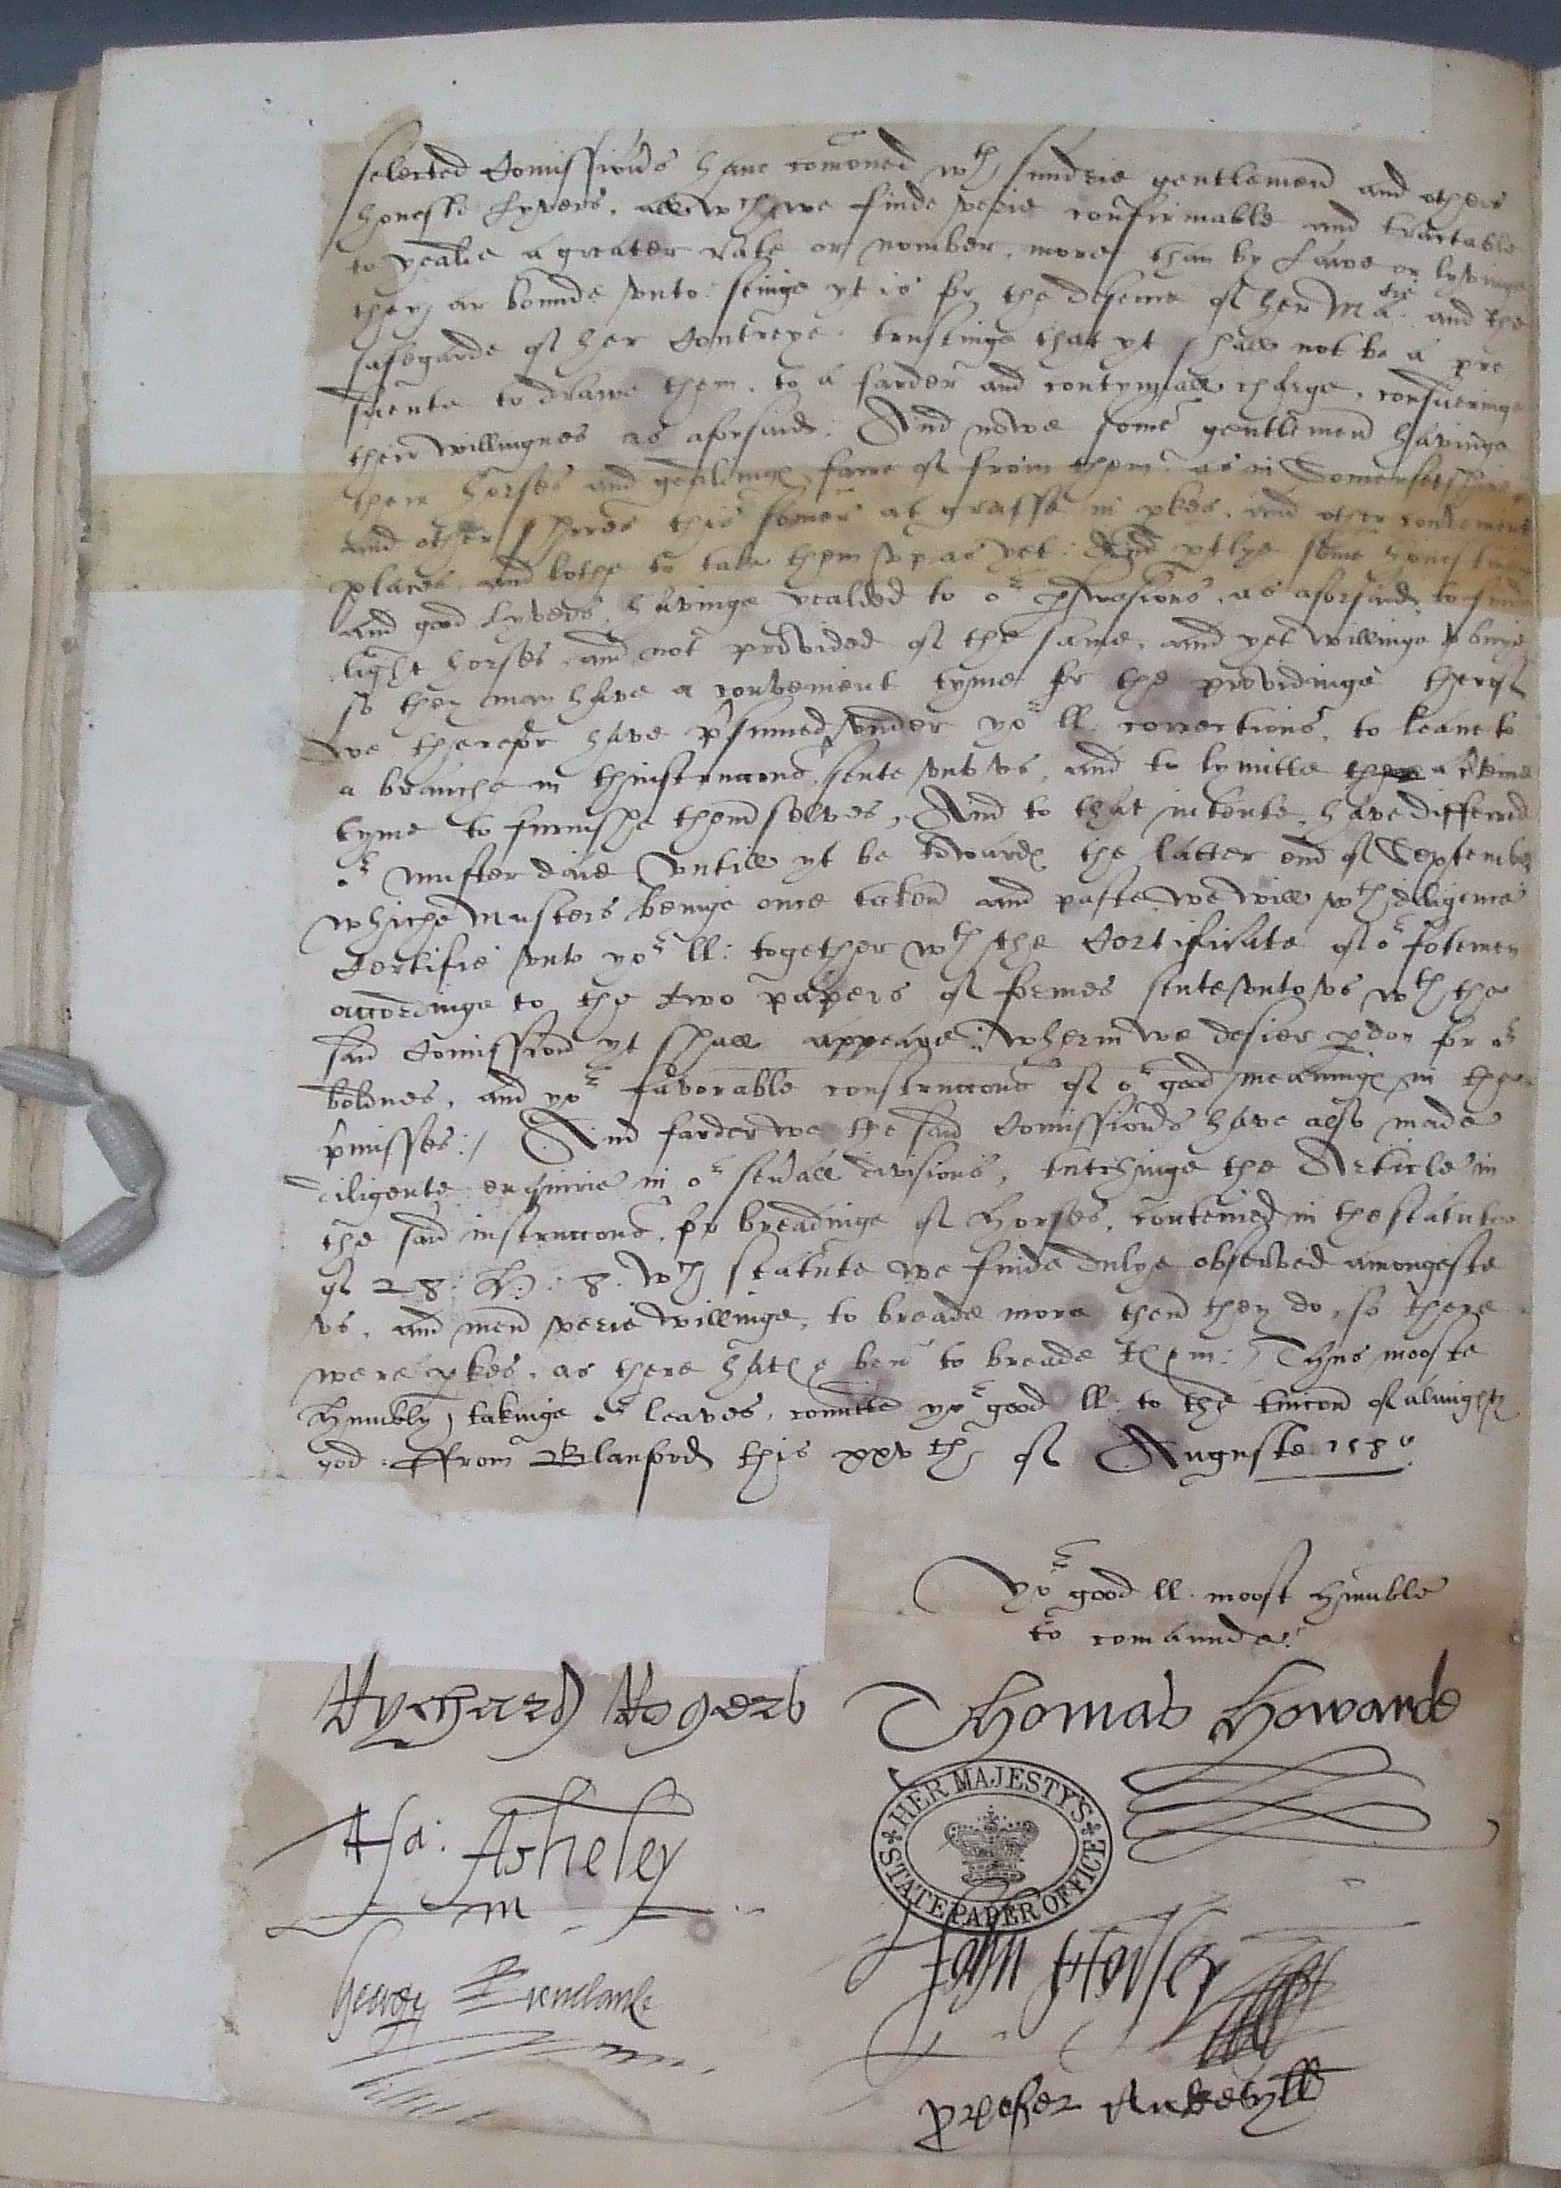 selected Comissions have comoned wth sundrie gentlemen and others
honeste lyvers. all wch we finde verie confirmable and tractable
to yealde a greater rate or nomber, more than by Lawe or
they ar bounde unto: seinge yt is for the defence of her Matie and the
safegarde of her Contreye. trustinge that yt shall not be a pre
sidente to drawe them, to a farder and contynuall charge, consideringe
their willingnes as aforsaid. And nowe some gentlemen havinge
their horses and geldinges farre of from them. as in Somersetshire
and other sheres this somer at grasse in pkes, and other convenient
places, and lothe to take them up as yet: And ptlye some honest
and good Lyvers, havinge yealded to or pswasions, as aforsaid, to finde
light horses, and not provided of the same, and yet willinge to
so they may have a convenient tyme for the providinge therof
we therefor have psumed, under yor ll. corrections, to leane to
a braunche in thinstruccons sente unto us, and to lymitte a
tyme to furnishe themselves, And to that intente, have differred
or muster daie untill yt be towards the latter end of September
whiche musters beinge once taken and paste we will wth diligence
Certifie unto yor ll: together wth the Certificate of or fotemen
accordinge to the two papers of formes sente unto us wth the
said Comission yt shall appeare: wherin we desier pdon for or
boldnes, and yor favorable construccons of or good meaninge in the
pmisses:/ And farder we the said Comissions have also made
diligente enquirie in or sevall divisions, tutchinge the Article in
the said instruccons, for breadinge of horses, conteined in the statute
of 28: H: 8. wch statute we finde dulye observed amongeste
us, and men verie willinge, to breade more then they do, so there
were pkes, as there hathe ben to breade them:/ Thus mooste
Humbly takinge or leaves, comitte yor good ll. to the tuicon of almighty
god: ffrom Blanford this xxvth of Auguste. 1580.
Yor good ll. moost Humble
to comaunde:
Rychard Rogers Thomas Howarde
HER MAJESTY'S
STATE PAPER OFFICE
Ha: Asheley
John Horsey
George Trenchard